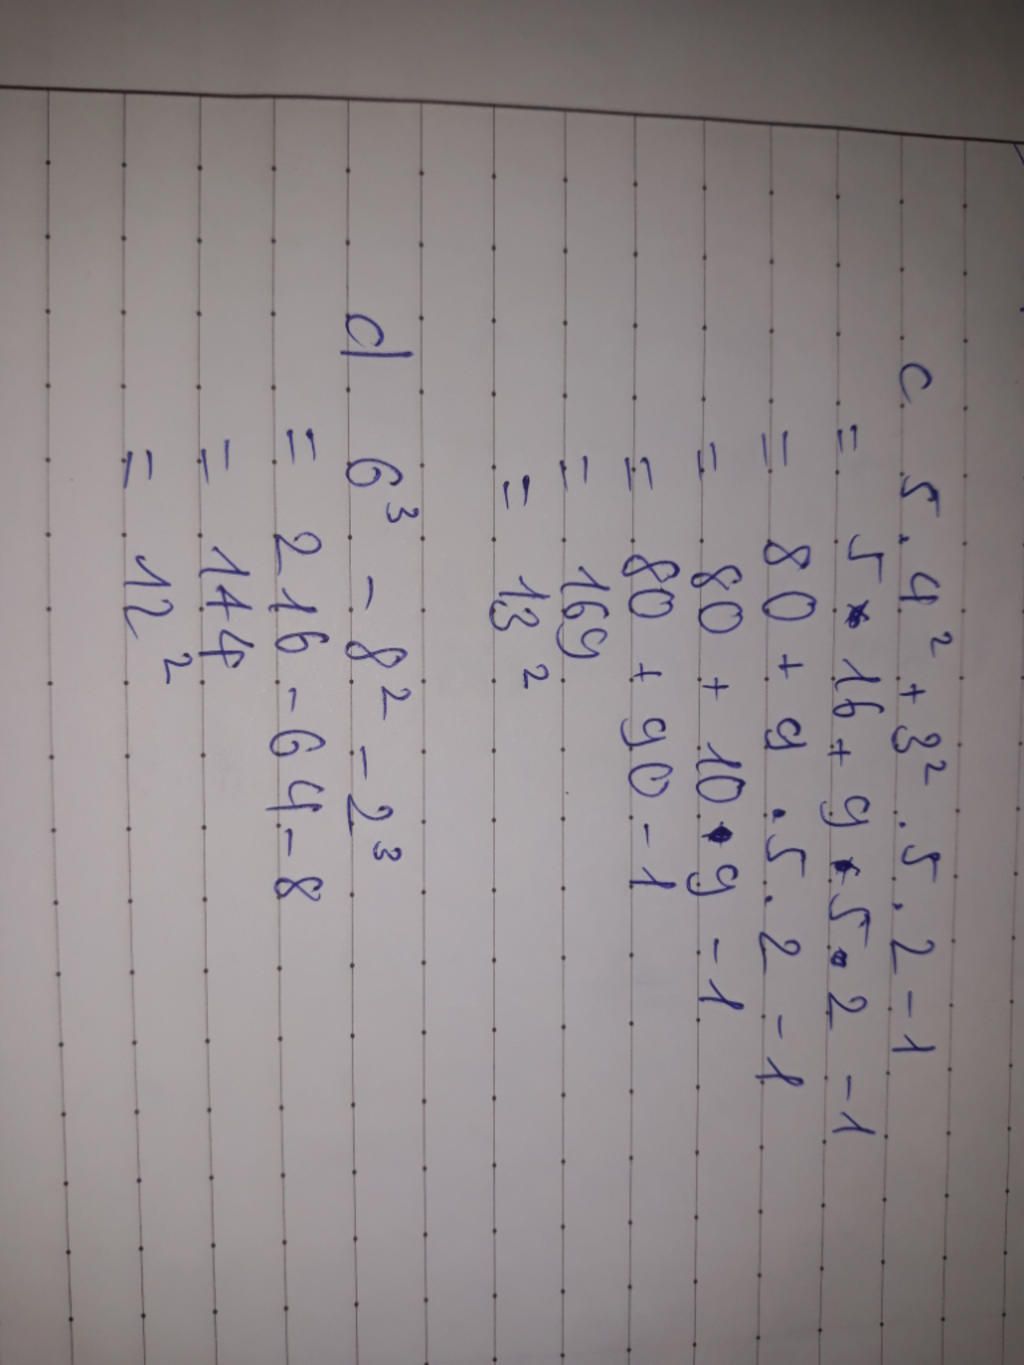 c 5.4² + 3².5.2 - 1
= 5.16 + 9.5.2 - 1
= 80 + 9.5.2 - 1
= 80 + 10.9 - 1
= 80 + 90 - 1
= 169
= 13²
d| 6³ - 8² - 2³
= 216 - 64 - 8
= 144
= 12²